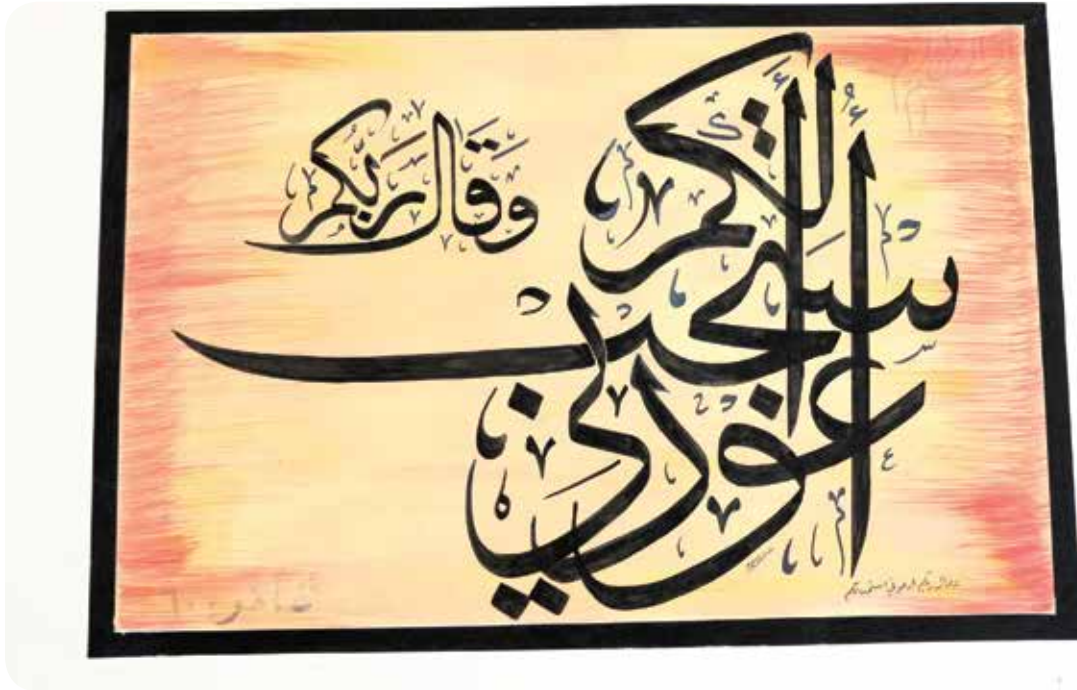 وَقَالَ رَبُّكُمُ
ادْعُونِي أَسْتَجِبْ لَكُمْ